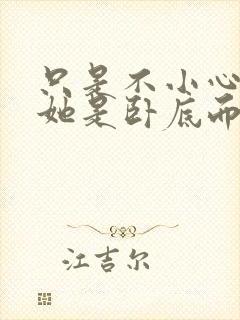 只是不小心
她是卧底而
江吉尔